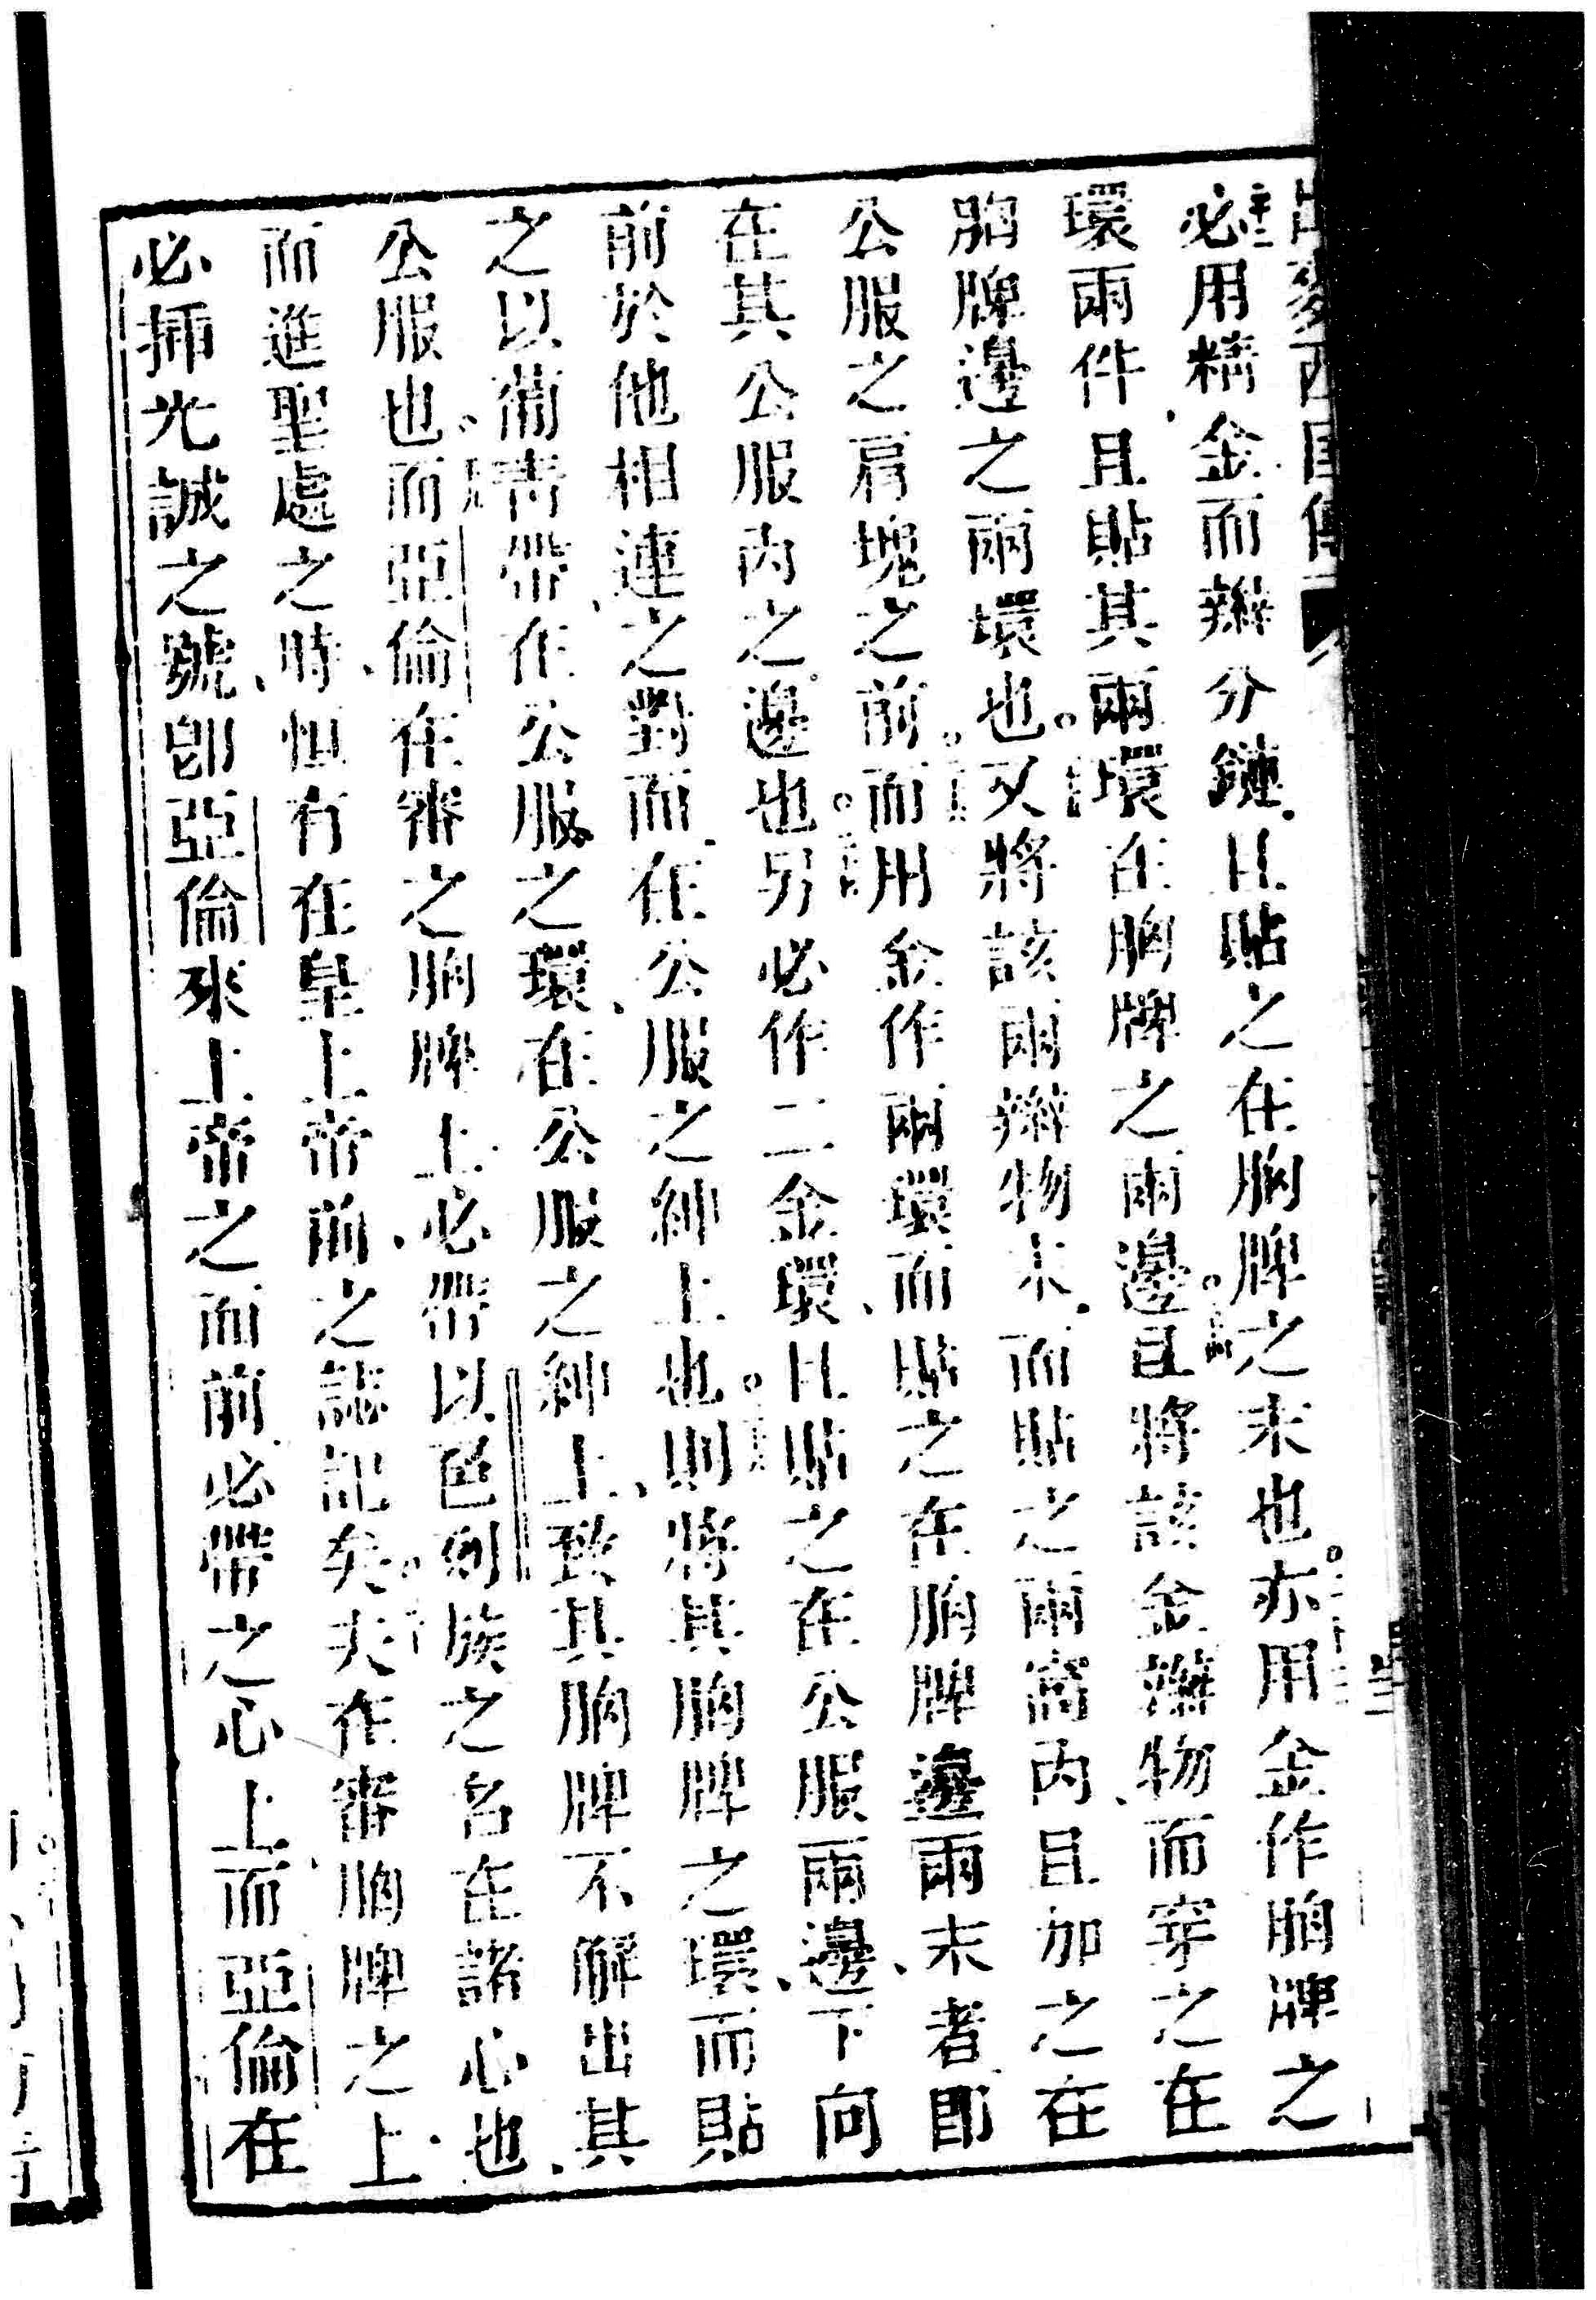 必用精金而辮分鏈且貼之在胸牌之末也亦用金作胸牌之
環兩件且貼其兩環在胸牌之兩邊且將該金辮物而穿之在
胸牌邊之兩環也又將該兩辮物末而貼之兩窩內且加之在
公服之肩塊之前而用金作兩環而貼之在胸牌邊兩末者即
在其公服內之邊也另必作二金環且貼之在公服兩邊下向
前於他相連之對而在公服之紳上也則將其胸牌之環而貼
之以葡青帶在公服之環在公服之紳上致其胸牌不解出其
公服也而亞倫在審之胸牌上必帶以色列族之名在諸心也
而進聖處之時恒有在皇上帝前之誌記矣夫在審胸牌之上
必插光誠之號卽亞倫來上帝之面前必帶之心上而亞倫在